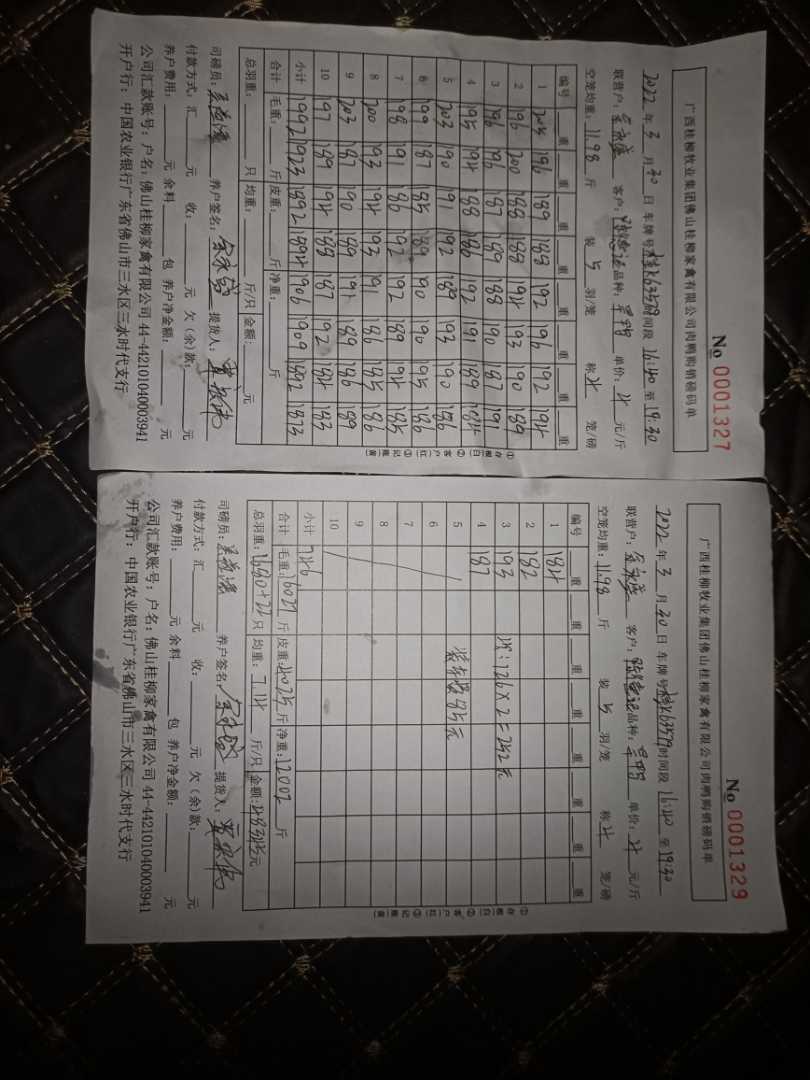 No 0001327
广西桂柳牧业集团佛山桂柳家禽有限公司肉鸭购销磅码单
2022 年 3 月 30 日 车牌号 桂K63579 时间段 16:40 至 19:30
联营户: 余永盛 客户: 品种: 单价: 4 元/斤
空笼均重: 11.98 斤 装 5 羽/笼 称 4 笼/磅
编号 重 重 重 重 重 重 重 重
1 205 196 189 188 192 196 192 194
2 196 200 188 188 194 193 190 189
3 196 196 187 189 188 190 187 191
4 195 194 188 186 192 191 189 184
5 203 190 191 192 189 193 190 186
6 199 187 185 189 190 190 195 186
7 198 191 186 192 192 189 194 185
8 200 193 194 193 191 186 185 186
9 203 187 190 189 191 189 186 189
10 197 189 194 188 187 192 184 183
小计 1992 1923 1892 1894 1906 1909 1892 1873
合计 毛重: 斤 皮重: 斤 净重: 斤
总羽重: 只 均重: 斤/只 金额: 元
司磅员: 养户签名: 余永盛 提货人:
付款方式: 汇 元 收: 元 欠(余)款: 元
养户费用: 元 余料 包 养户净金额: 元
公司汇款账号: 户名: 佛山桂柳家禽有限公司 44-442101040003941
开户行: 中国农业银行广东省佛山市三水区三水时代支行
①存根(白) ②客户(红) ③记账(黄)
No 0001329
广西桂柳牧业集团佛山桂柳家禽有限公司肉鸭购销磅码单
2022 年 3 月 30 日 车牌号 桂K63579 时间段 16:40 至 19:30
联营户: 余永盛 客户: 品种: 单价: 4 元/斤
空笼均重: 11.98 斤 装 5 羽/笼 称 4 笼/磅
编号 重 重 重 重 重 重 重 重
1 184
2 182
3 193 126×2=252元
4 187
5 85元
6
7
8
9
10
小计 746
合计 毛重: 16027 斤 皮重: 4025 斤 净重: 12002 斤
总羽重: 1680+22 只 均重: 7.14 斤/只 金额: 48345元
司磅员: 养户签名: 余永盛 提货人:
付款方式: 汇 元 收: 元 欠(余)款: 元
养户费用: 元 余料 包 养户净金额: 元
公司汇款账号: 户名: 佛山桂柳家禽有限公司 44-442101040003941
开户行: 中国农业银行广东省佛山市三水区三水时代支行
①存根(白) ②客户(红) ③记账(黄)